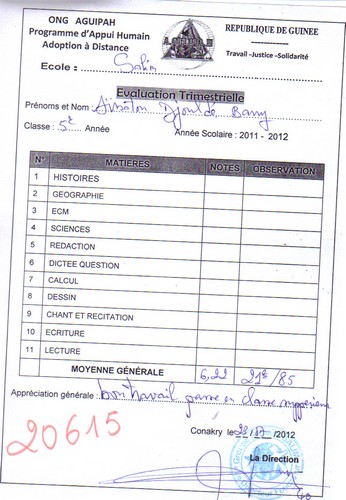 ONG AGUIPAH
Programme d'Appui Humain
Adoption à Distance
REPUBLIQUE DE GUINEE
Travail -Justice -Solidarité
Ecole :
Evaluation Trimestrielle
Prénoms et Nom Aissatou Djouldé Barry
Classe : 5è Année
Année Scolaire : 2011 - 2012
N° MATIERES NOTES OBSERVATION
1 HISTOIRES
2 GEOGRAPHIE
3 ECM
4 SCIENCES
5 REDACTION
6 DICTEE QUESTION
7 CALCUL
8 DESSIN
9 CHANT ET RECITATION
10 ECRITURE
11 LECTURE
MOYENNE GÉNÉRALE 6,22 21è/85
Appréciation générale : bon travail passe en classe supérieure
20615
Conakry le /2012
La Direction